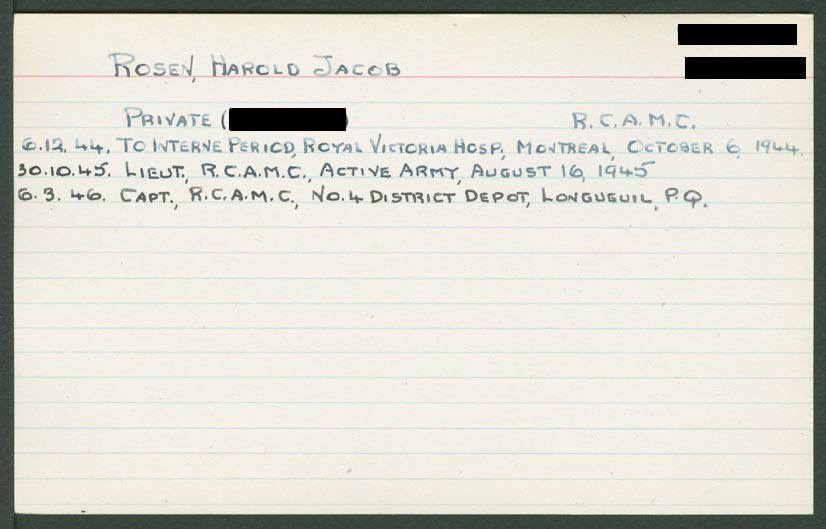 ROSEN, HAROLD JACOB
PRIVATE ( ) R.C.A.M.C.
6.12.44. TO INTERNE PERIOD, ROYAL VICTORIA HOSP., MONTREAL, OCTOBER 6, 1944.
30.10.45. LIEUT., R.C.A.M.C., ACTIVE ARMY, AUGUST 16, 1945
6.3.46. CAPT., R.C.A.M.C., NO.4 DISTRICT DEPOT, LONGUEUIL, P.Q.